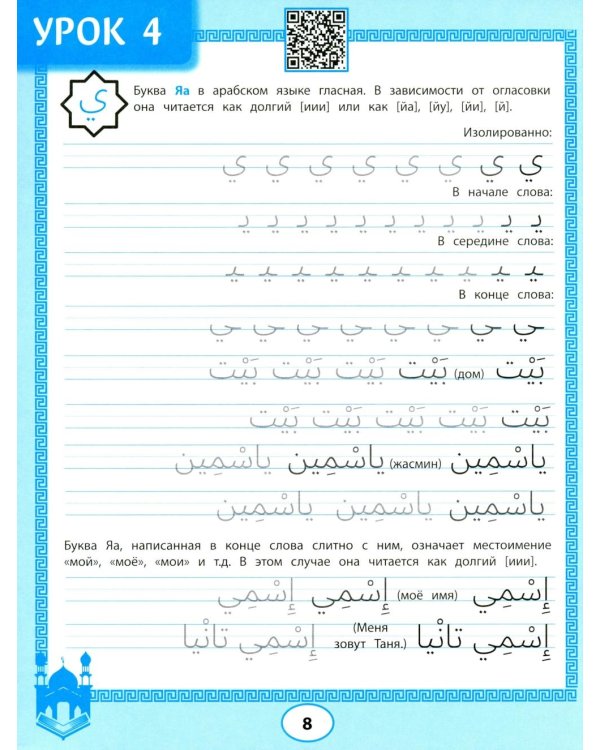 УРОК 4
ي
Буква Яа в арабском языке гласная. В зависимости от огласовки
она читается как долгий [иии] или как [йа], [йу], [йи], [й].
Изолированно:
ي ي ي ي ي ي ي
В начале слова:
يـ يـ يـ يـ يـ يـ يـ يـ يـ يـ
В середине слова:
ـيـ ـيـ ـيـ ـيـ ـيـ ـيـ ـيـ ـيـ ـيـ
В конце слова:
ـي ـي ـي ـي ـي ـي ـي ـي
بَيْت (дом) بَيْت بَيْت بَيْت بَيْت
بَيْت بَيْت بَيْت بَيْت بَيْت
ياسْمِين (жасмин) ياسْمِين ياسْمِين
ياسْمِين ياسْمِين ياسْمِين
Буква Яа, написанная в конце слова слитно с ним, означает местоимение
«мой», «моё», «мои» и т.д. В этом случае она читается как долгий [иии].
إِسْمِي (моё имя) إِسْمِي إِسْمِي
إِسْمِي تانْيا (Меня зовут Таня.) إِسْمِي تانْيا
8